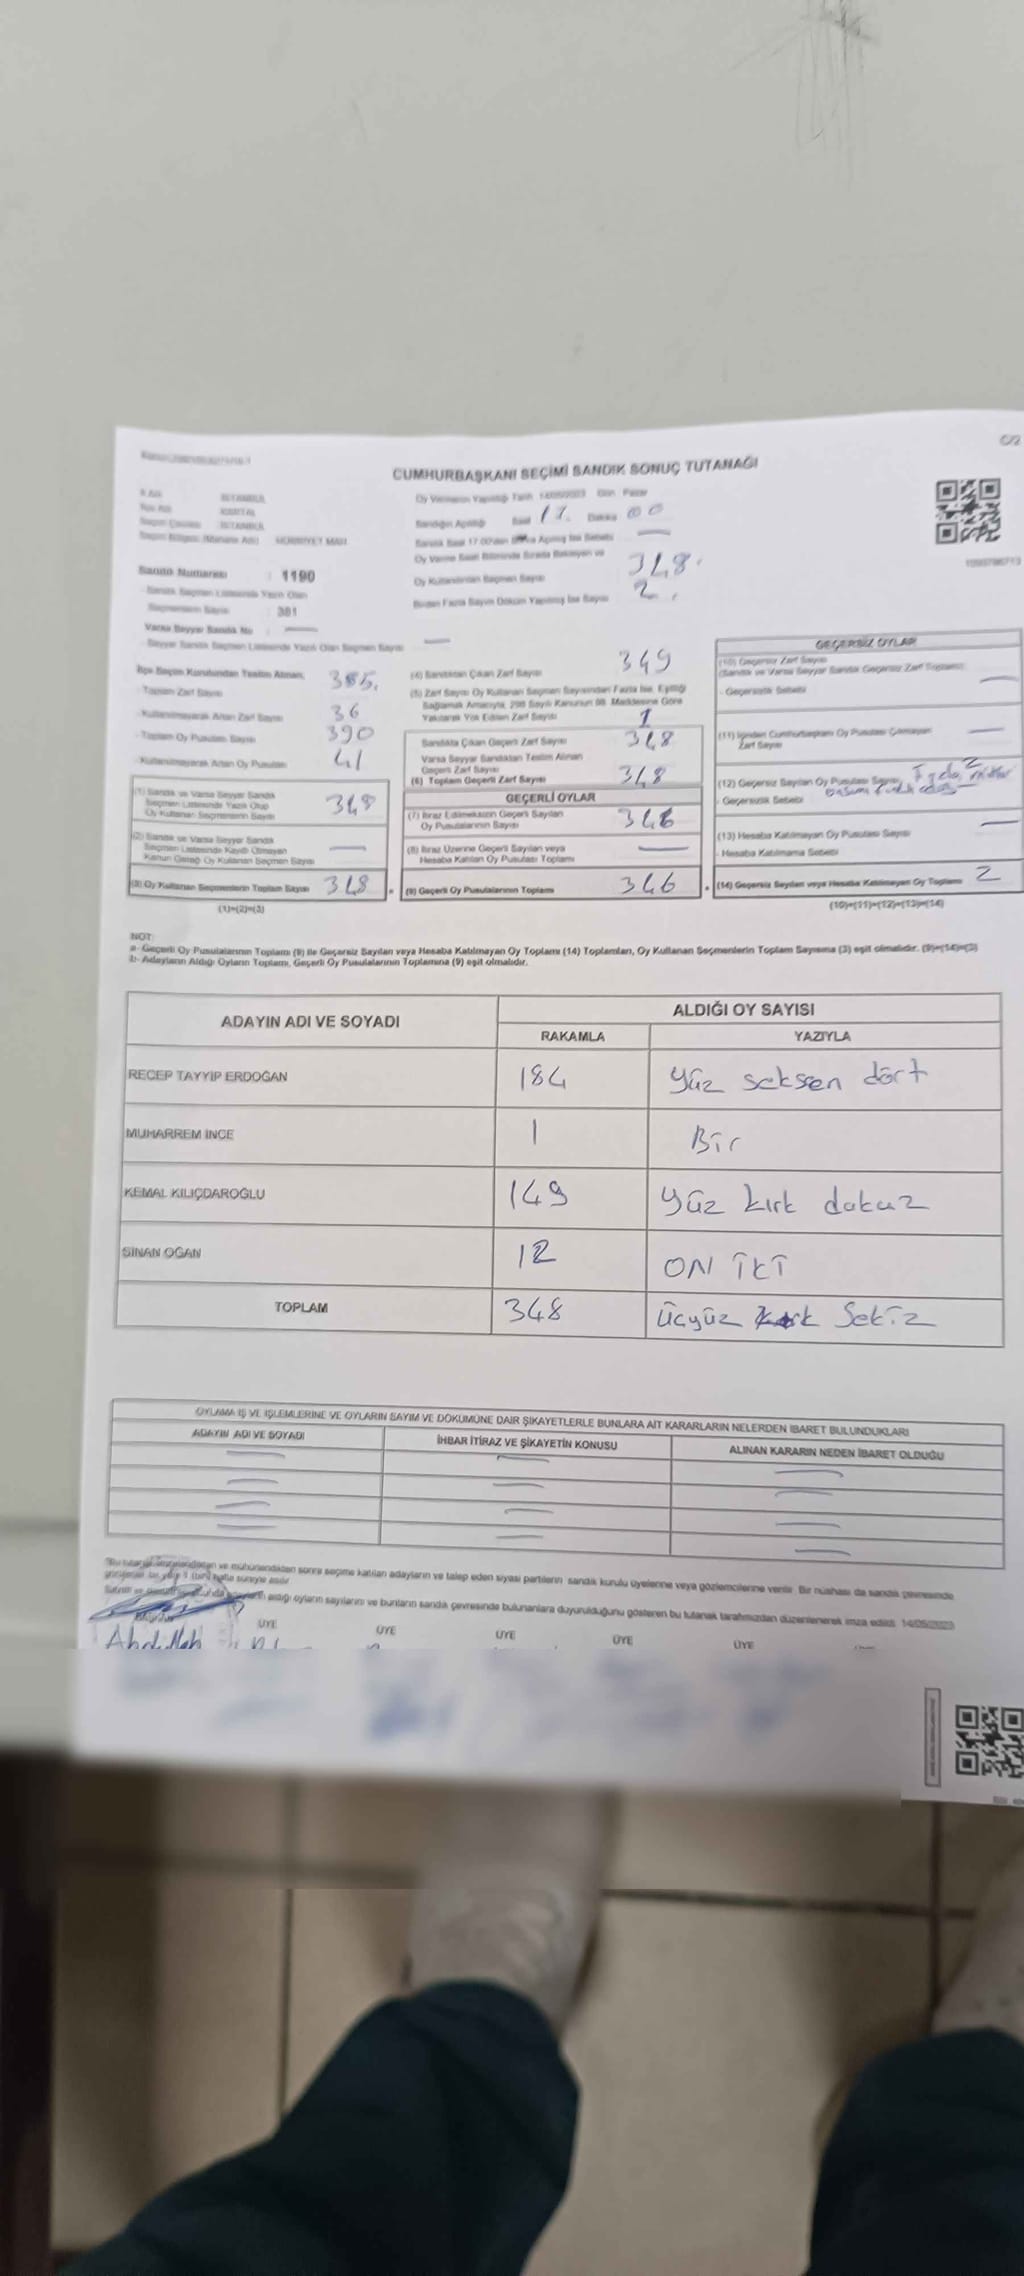 C/2
CUMHURBAŞKANI SEÇİMİ SANDIK SONUÇ TUTANAĞI
İSTANBUL
Oy Vermenin Yapıldığı Tarih 14/05/2023 Gün Pazar
KARTAL
Sandığın Açıldığı Saat 17. Dakika 00
Seçim Çevresi İSTANBUL
HÜRRİYET MAH.
Sandık Saat 17:00'den Önce Açılmış İse Sebebi —
Oy Verme Saati Bitiminde Sırada Bekleyen ve
Oy Kullandırılan Seçmen Sayısı 348.
Sandık Numarası : 1190
Birden Fazla Sayım Döküm Yapılmış İse Sayısı 2.
Sandık Seçmen Listesinde Yazılı Olan
Seçmenlerin Sayısı : 381
Varsa Seyyar Sandık No : —
Seyyar Sandık Seçmen Listesinde Yazılı Olan Seçmen Sayısı —
İlçe Seçim Kurulundan Teslim Alınan;
- Toplam Zarf Sayısı 385.
- Kullanılmayarak Artan Zarf Sayısı 36
- Toplam Oy Pusulası Sayısı 390
- Kullanılmayarak Artan Oy Pusulası 41
(1) Sandık ve Varsa Seyyar Sandık
Seçmen Listesinde Yazılı Olup
Oy Kullanan Seçmenlerin Sayısı 348
(2) Sandık ve Varsa Seyyar Sandık
Seçmen Listesinde Kayıtlı Olmayan
Kanun Gereği Oy Kullanan Seçmen Sayısı —
(3) Oy Kullanan Seçmenlerin Toplam Sayısı 348
(1)+(2)=(3)
(4) Sandıktan Çıkan Zarf Sayısı 349
(5) Zarf Sayısı Oy Kullanan Seçmen Sayısından Fazla İse, Eşitliği
Sağlamak Amacıyla, 298 Sayılı Kanunun 98. Maddesine Göre
Yakılarak Yok Edilen Zarf Sayısı 1
Sandıkta Çıkan Geçerli Zarf Sayısı 348
Varsa Seyyar Sandıktan Teslim Alınan
Geçerli Zarf Sayısı
(6) Toplam Geçerli Zarf Sayısı 348
GEÇERLİ OYLAR
(7) İtiraz Edilmeksizin Geçerli Sayılan
Oy Pusulalarının Sayısı 346
(8) İtiraz Üzerine Geçerli Sayılan veya
Hesaba Katılan Oy Pusulası Toplamı —
(9) Geçerli Oy Pusulalarının Toplamı 346
GEÇERSİZ OYLAR
(10) Geçersiz Zarf Sayısı
(Sandık ve Varsa Seyyar Sandık Geçersiz Zarf Toplamı) —
- Geçersizlik Sebebi
(11) İçinden Cumhurbaşkanı Oy Pusulası Çıkmayan
Zarf Sayısı —
(12) Geçersiz Sayılan Oy Pusulası Sayısı 2
- Geçersizlik Sebebi
(13) Hesaba Katılmayan Oy Pusulası Sayısı —
- Hesaba Katılmama Sebebi
(14) Geçersiz Sayılan veya Hesaba Katılmayan Oy Toplamı 2
(10)+(11)+(12)+(13)=(14)
NOT:
a- Geçerli Oy Pusulalarının Toplamı (9) ile Geçersiz Sayılan veya Hesaba Katılmayan Oy Toplamı (14) Toplamları, Oy Kullanan Seçmenlerin Toplam Sayısına (3) eşit olmalıdır. (9)+(14)=(3)
b- Adayların Aldığı Oyların Toplamı, Geçerli Oy Pusulalarının Toplamına (9) eşit olmalıdır.
ADAYIN ADI VE SOYADI
ALDIĞI OY SAYISI
RAKAMLA YAZIYLA
RECEP TAYYİP ERDOĞAN 184 Yüz seksen dört
MUHARREM İNCE 1 Bir
KEMAL KILIÇDAROĞLU 149 Yüz kırk dokuz
SİNAN OĞAN 12 ON İKİ
TOPLAM 348 Üçyüz kırk Sekiz
OYLAMA İŞ VE İŞLEMLERİNE VE OYLARIN SAYIM VE DÖKÜMÜNE DAİR ŞİKAYETLERLE BUNLARA AİT KARARLARIN NELERDEN İBARET BULUNDUKLARI
ADAYIN ADI VE SOYADI İHBAR İTİRAZ VE ŞİKAYETİN KONUSU ALINAN KARARIN NEDEN İBARET OLDUĞU
ve mühürlendikten sonra seçime katılan adayların ve talep eden siyasi partilerin sandık kurulu üyelerine veya gözlemcilerine verilir. Bir nüshası da sandık çevresinde
aldığı oyların sayılarını ve bunların sandık çevresinde bulunanlara duyurulduğunu gösteren bu tutanak tarafımızdan düzenlenerek imza edildi. 14/05/2023
ÜYE ÜYE ÜYE ÜYE ÜYE
Abdullah